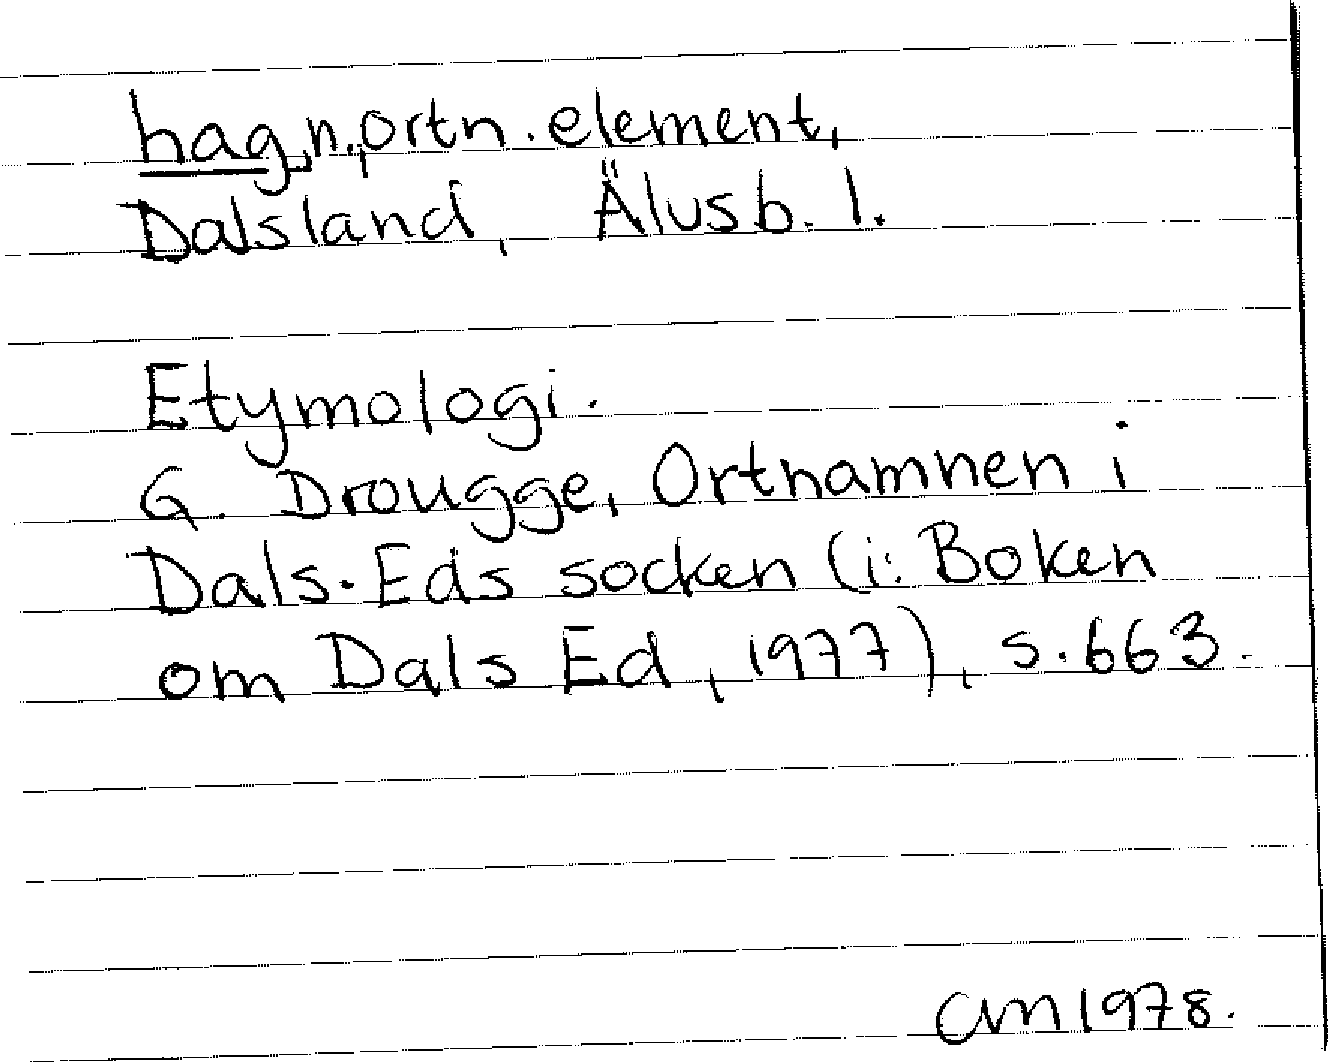 hag, n., ortn. element,
Dalsland, Älvsb. l.
Etymologi.
G. Drougge, Ortnamnen i
Dals-Eds socken (i: Boken
om Dals Ed, 1977), s. 663.
CM 1978.